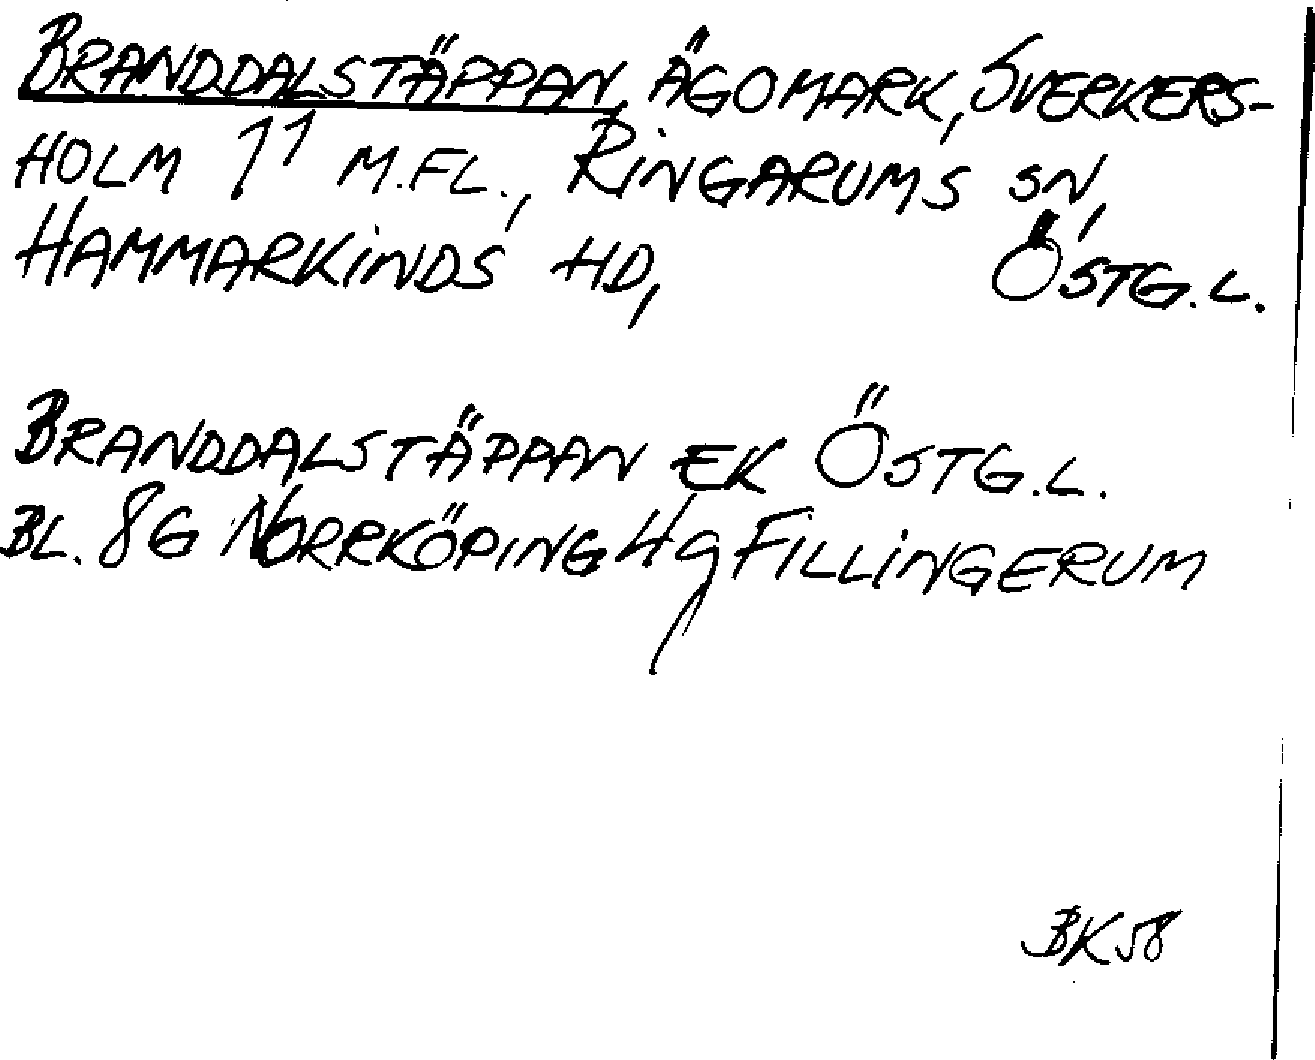 BRANDDALSTÄPPAN, ÄGOMARK, SVERKERS-
HOLM 1¹ M.FL., RINGARUMS SN,
HAMMARKINDS HD, ÖSTG.L.
BRANDDALSTÄPPAN EK ÖSTG.L.
BL. 8G NORRKÖPING 4g FILLINGERUM
BK58